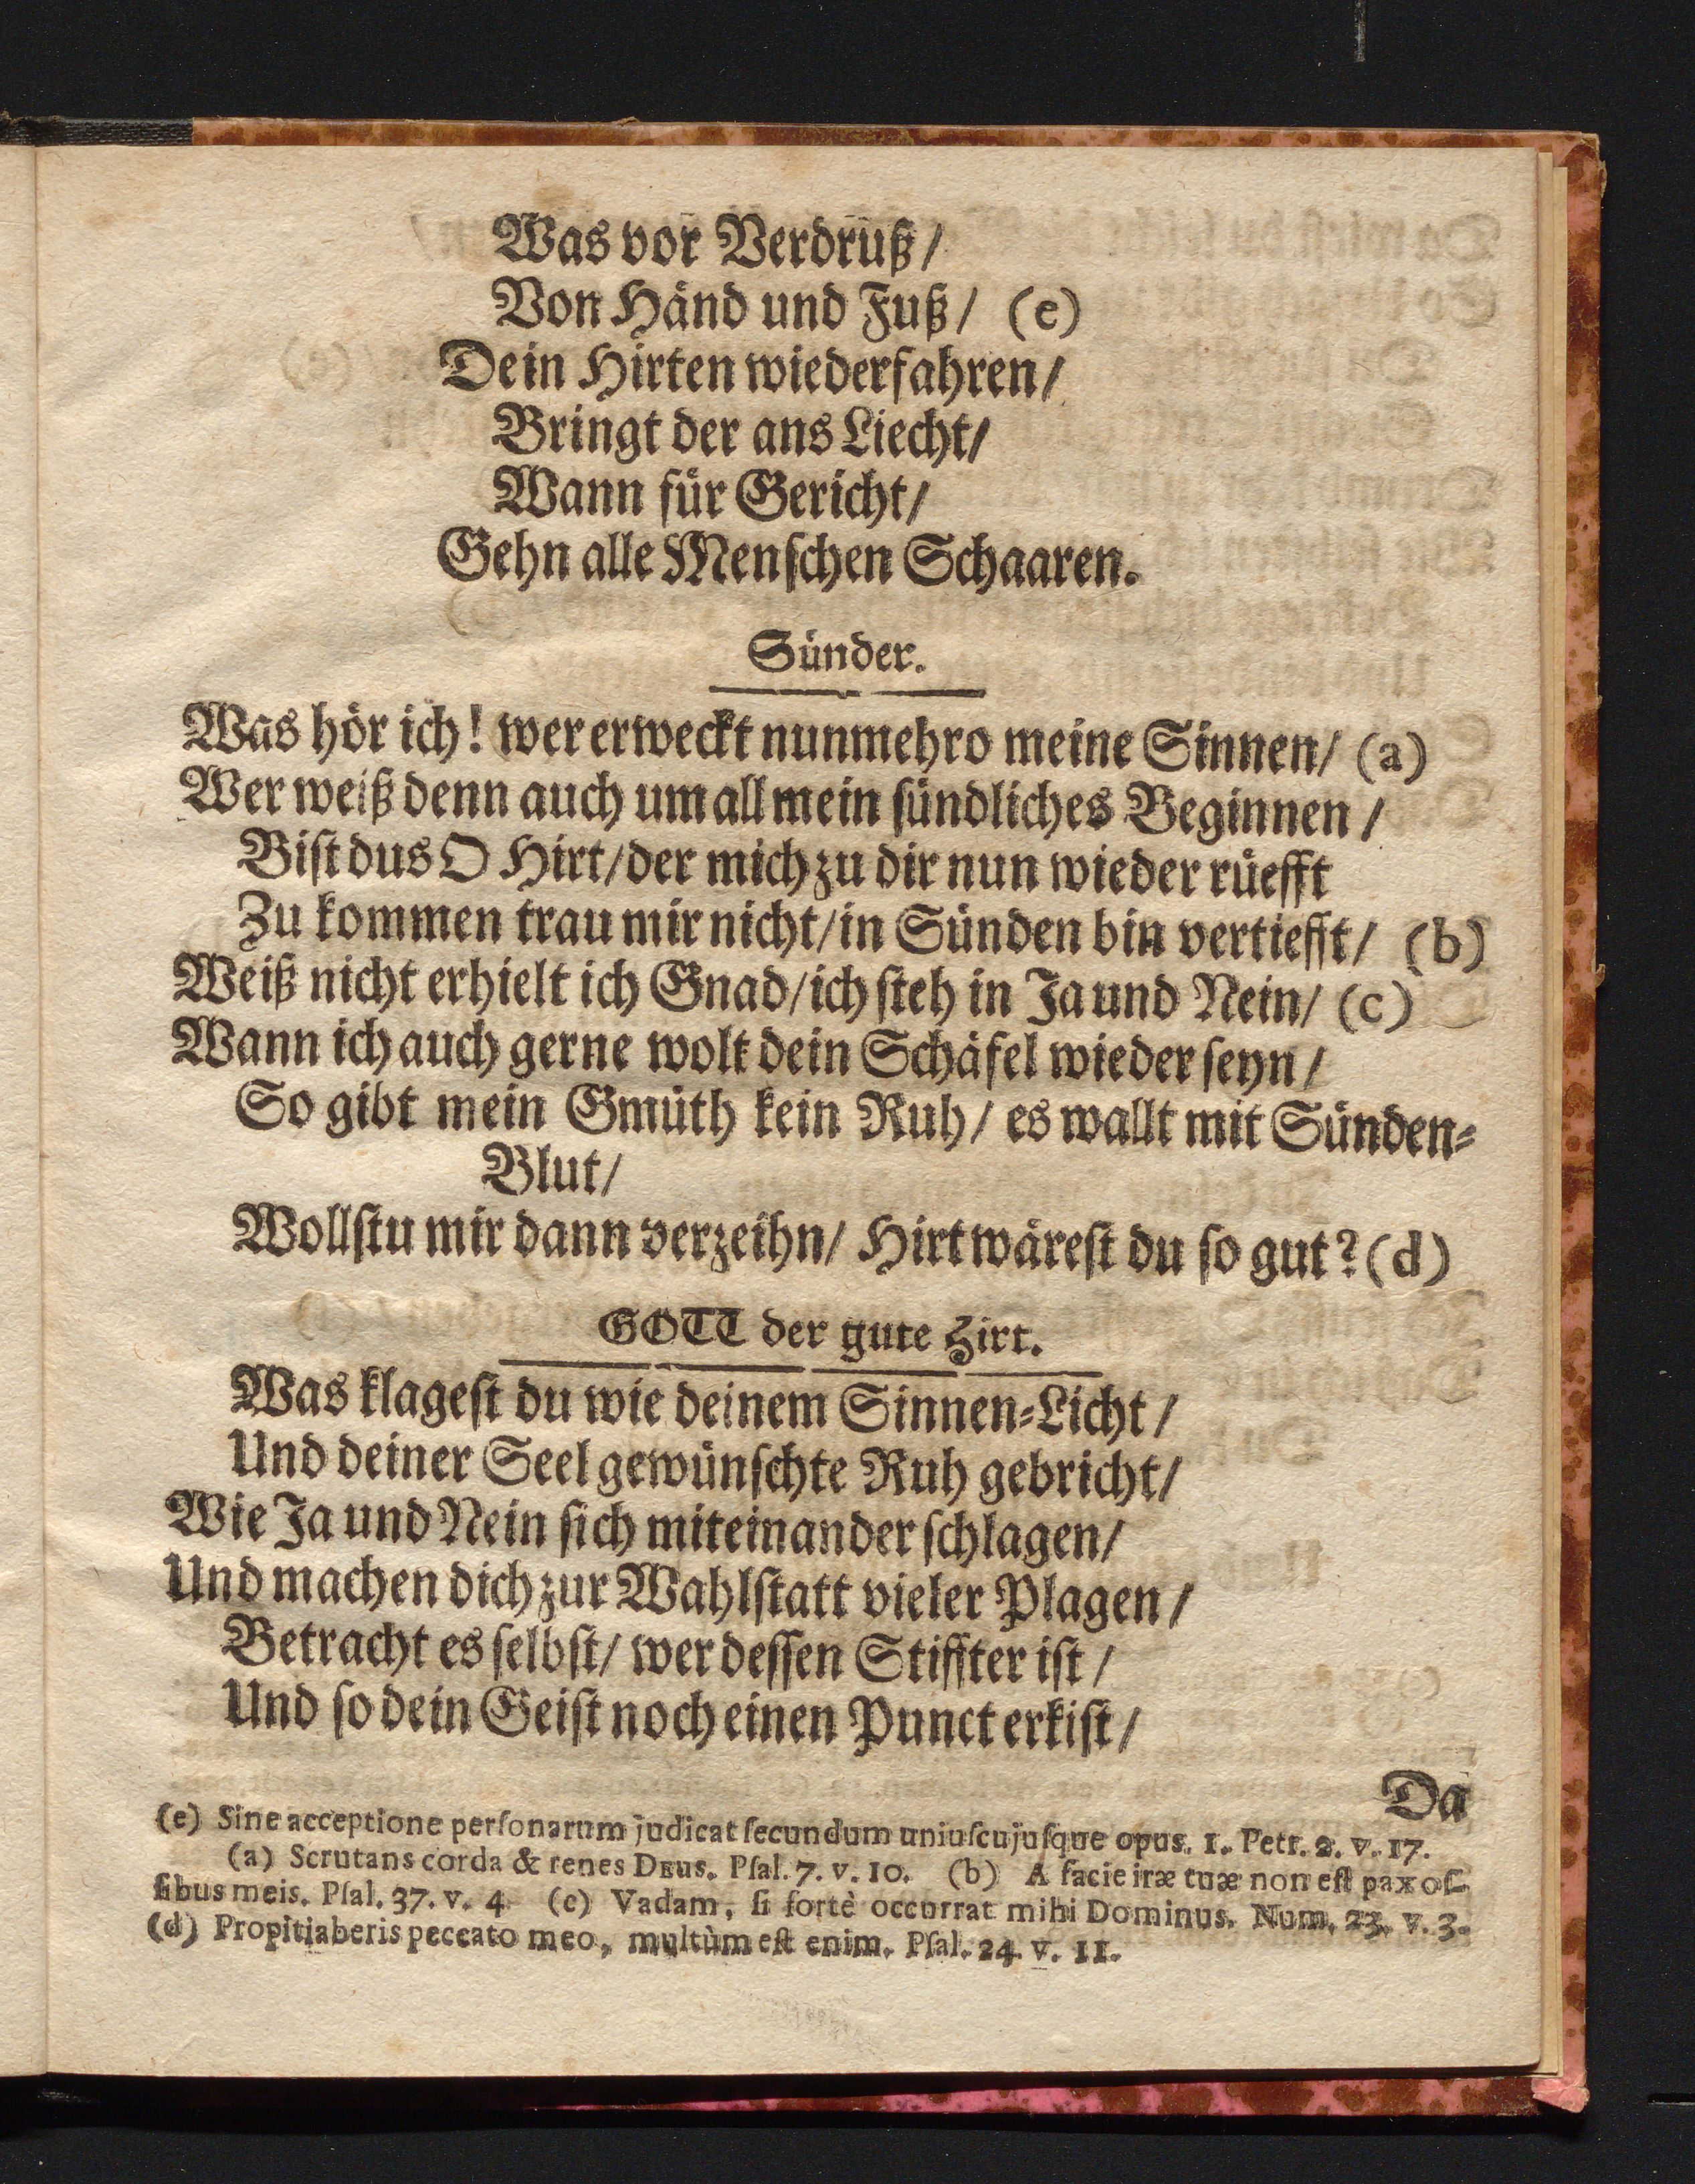 Was vor Verdruß/
Von Händ und Fuß/ (e)
Dein Hirten wiederfahren/
Bringt der ans Liecht/
Wann für Gericht/
Gehn alle Menſchen Schaaren.
Sünder.
Was hör ich! wer erweckt nunmehro meine Sinnen/ (a)
Wer weiß denn auch um all mein ſündliches Beginnen/
Biſt dus O Hirt/der mich zu dir nun wieder rüefft
Zu kommen trau mir nicht/in Sünden bin vertiefft/ (b)
Weiß nicht erhielt ich Gnad/ich ſteh in Ja und Nein/ (c)
Wann ich auch gerne wolt dein Schäfel wieder ſeyn/
So gibt mein Gmüth kein Ruh/ es wallt mit Sünden-
Blut/
Wollſtu mir dann verzeihn/ Hirt wäreſt du ſo gut? (d)
GOTT der gute Hirt.
Was klageſt du wie deinem Sinnen-Licht/
Und deiner Seel gewünſchte Ruh gebricht/
Wie Ja und Nein ſich miteinander ſchlagen/
Und machen dich zur Wahlſtatt vieler Plagen/
Betracht es ſelbſt/ wer deſſen Stiffter iſt/
Und ſo dein Geiſt noch einen Punct erkiſt/
Da
(e) Sine acceptione perſonarum judicat ſecundum uniuſcujuſque opus. 1. Petr. 2. v. 17.
(a) Scrutans corda & renes DEUS. Pſal. 7. v. 10. (b) A facie iræ tuæ non eſt pax oſ-
ſibus meis. Pſal. 37. v. 4. (c) Vadam, ſi fortè occurrat mihi Dominus. Num. 23. v. 3.
(d) Propitiaberis peccato meo, multùm eſt enim. Pſal. 24. v. 11.